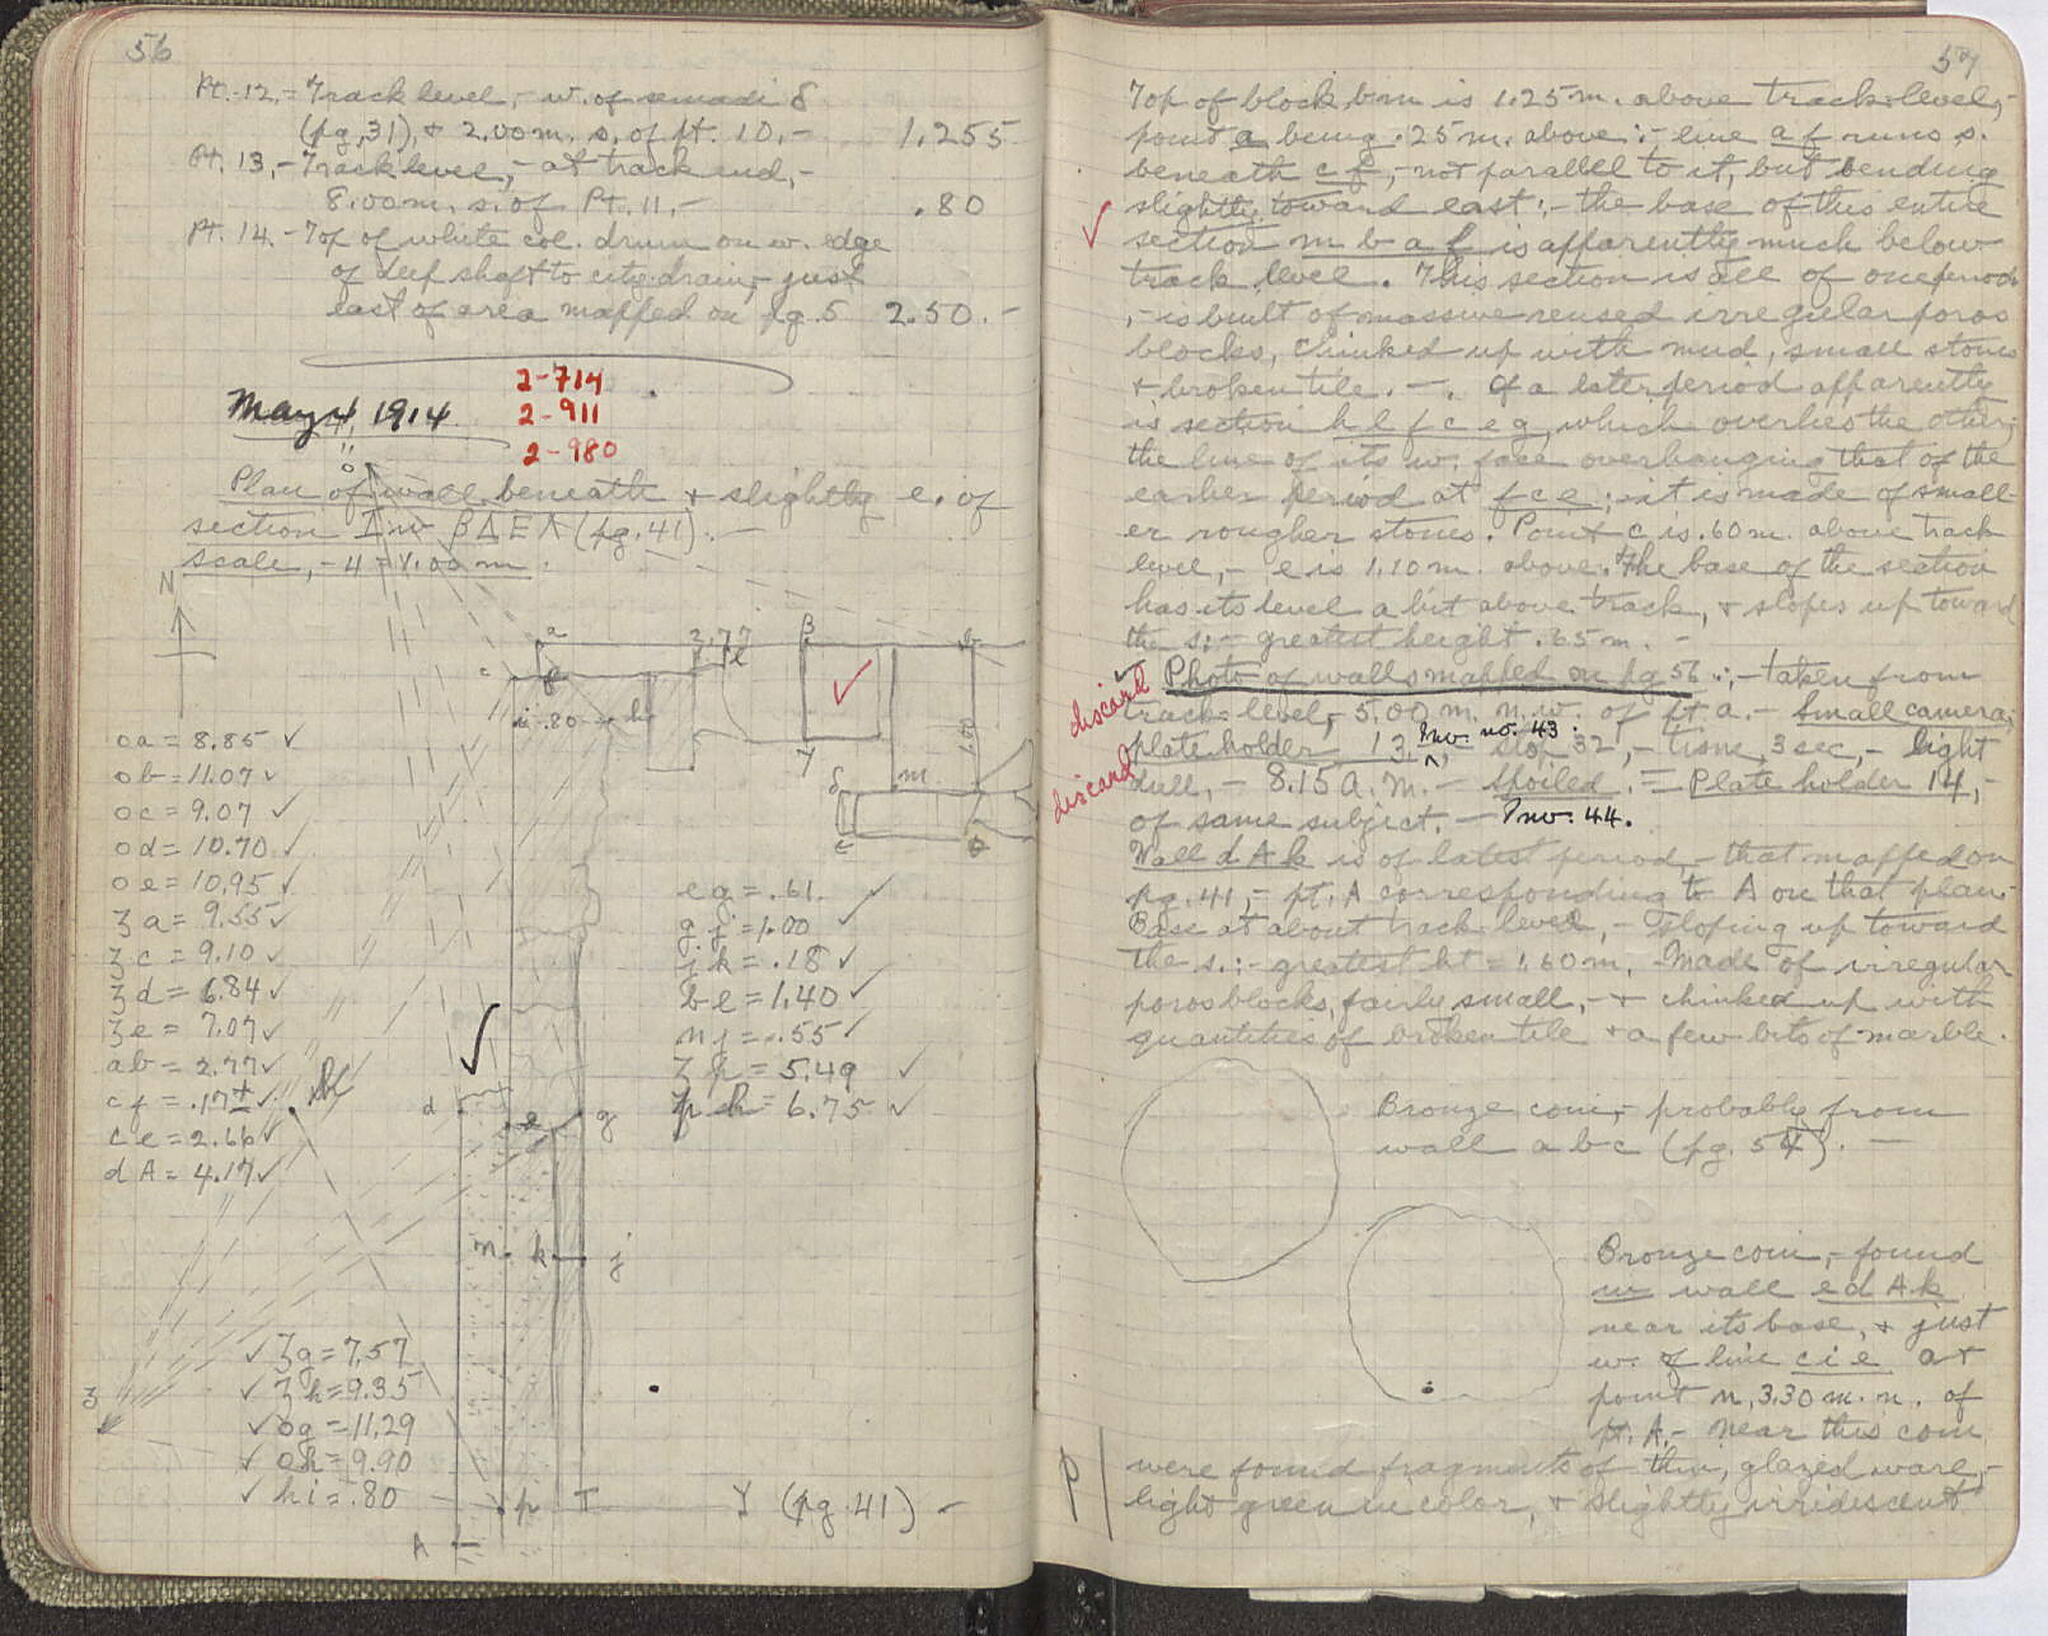 56
Pt. 12. = Track level, - w. of δ
(pg. 31), + 2.00 m. s. of pt. 10. - 1.255
Pt. 13, - Track level, - at track end, -
8.00 m. s. of Pt. 11. - .80
Pt. 14. - Top of white col. drum on w. edge
of deep shaft to city drain, - just
east of area mapped on pg. 5 2.50. -
2-714
May 4, 1914.
2-911
2-980
o
Plan of wall beneath + slightly e. of
section I in βΔΕΛ (pg. 41). -
Scale, -
N
a
3.77
l
β
b
c
f
i .80 h
γ
m
1.00
δ
ε
oa = 8.85 ✓
ob = 11.07 ✓
oc = 9.07 ✓
od = 10.70 ✓
oe = 10.95 ✓
ʒa = 9.55 ✓
ʒc = 9.10 ✓
ʒd = 6.84 ✓
ʒe = 7.07 ✓
ab = 2.77 ✓
cf = .17± ✓
ce = 2.66 ✓
dA = 4.17 ✓
eg = .61. ✓
gj = 1.00 ✓
jk = .18 ✓
be = 1.40 ✓
nj = .55 ✓
ʒp = 5.49 ✓
ph = 6.75 ✓
d
e
g
n
k
j
✓ ʒg = 7.57
✓ ʒh = 9.35
✓ og = 11.29
✓ oh = 9.90
✓ hi = .80
ʒ
p T Y (pg. 41) -
A
57
Top of block bm is 1.25 m. above track level, -
point a being .25 m. above : - line af runs s.
beneath cf, - not parallel to it, but bending
slightly toward east : - the base of this entire
section m b a f is apparently much below
track level. This section is all of one period
, - is built of massive reused irregular poros
blocks, chinked up with mud, small stones
+ broken tile. -. Of a later period apparently
is section h l f c e g, which overlies the other,
the line of its w. face overhanging that of the
earlier period at f c e ; - it is made of small-
er rougher stones. Point c is .60 m. above track
level, - e is 1.10 m. above. The base of the section
has its level a bit above track, + slopes up toward
the s: - greatest height .65 m. -
discard
Photo of walls mapped on pg 56 : - taken from
track level, - 5.00 m. n.w. of pt. a. - Small camera,
plate holder 13, Inv. no. 43. stop 32, - time, 3 sec, - light
discard
dull, - 8.15 A.M. - spoiled. = Plate holder 14, -
of same subject. - Inv. 44.
Wall d A k is of latest period, - that mapped on
pg. 41, - pt. A corresponding to A on that plan. -
Base at about track level, - sloping up toward
the s. : - greatest ht = 1.60 m. Made of irregular
poros blocks, fairly small, - + chinked up with
quantities of broken tile + a few bits of marble.
Bronze coin, - probably from
wall abc (pg. 54). -
Bronze coin, - found
in wall e d A k
near its base, + just
w. of line c i e at
point n, 3.30 m. n. of
pt. A. - Near this coin
P
were found fragments of thin, glazed ware, -
light green in color, + slightly irridescent